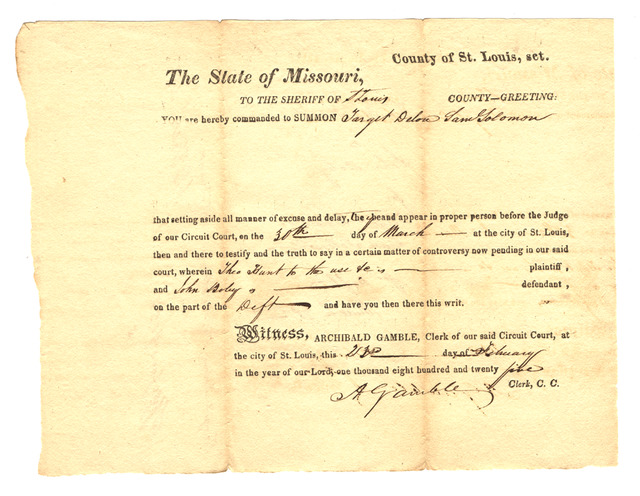 County of St. Louis, sct.
The State of Missouri,
TO THE SHERIFF OF St Louis COUNTY—GREETING:
YOU are hereby commanded to SUMMON Target Delou Saml Solomon
that setting aside all manner of excuse and delay, they be and appear in proper person before the Judge
of our Circuit Court, on the 30th day of March at the city of St. Louis,
then and there to testify and the truth to say in a certain matter of controversy now pending in our said
court, wherein Theo Hunt to the use &c is plaintiff,
and John Boly is defendant,
on the part of the Deft and have you then there this writ.
Witness, ARCHIBALD GAMBLE, Clerk of our said Circuit Court, at
the city of St. Louis, this day of February
in the year of our Lord, one thousand eight hundred and twenty five
A Gamble Clerk, C. C.